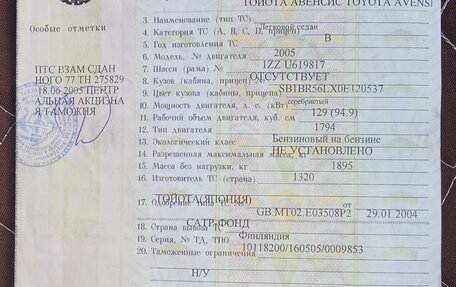 ТОЙОТА АВЕНСИС TOYOTA AVENS
Особые отметки
3. Наименование (тип ТС)
Легковой седан
4. Категория ТС (А, В, С, D, прицеп)
B
5. Год изготовления ТС
2005
6. Модель, № двигателя
1ZZ U619817
7. Шасси (рама) №
ОТСУТСТВУЕТ
8. Кузов (кабина, прицеп) №
SB1BR56LX0E120537
9. Цвет кузова (кабины, прицепа)
серебристый
10. Мощность двигателя, л. с. (кВт)
129 (94.9)
11. Рабочий объем двигателя, куб. см
1794
12. Тип двигателя
Бензиновый на бензине
13. Экологический класс
НЕ УСТАНОВЛЕНО
14. Разрешенная максимальная масса, кг
1895
15. Масса без нагрузки, кг
1320
16. Изготовитель ТС (страна)
ТОЙОТА(ЯПОНИЯ)
17. Одобрение типа ТС №
GB.MT02.E03508P2 от 29.01.2004
САТР-ФОНД
18. Страна вывоза ТС
Финляндия
19. Серия, № ТД, ТПО
10118200/160505/0009853
20. Таможенные ограничения
Н/У
ПТС ВЗАМ СДАН
НОГО 77 ТН 275829
18.06.2005 ЦЕНТР
АЛЬНАЯ АКЦИЗНА
Я ТАМОЖНЯ